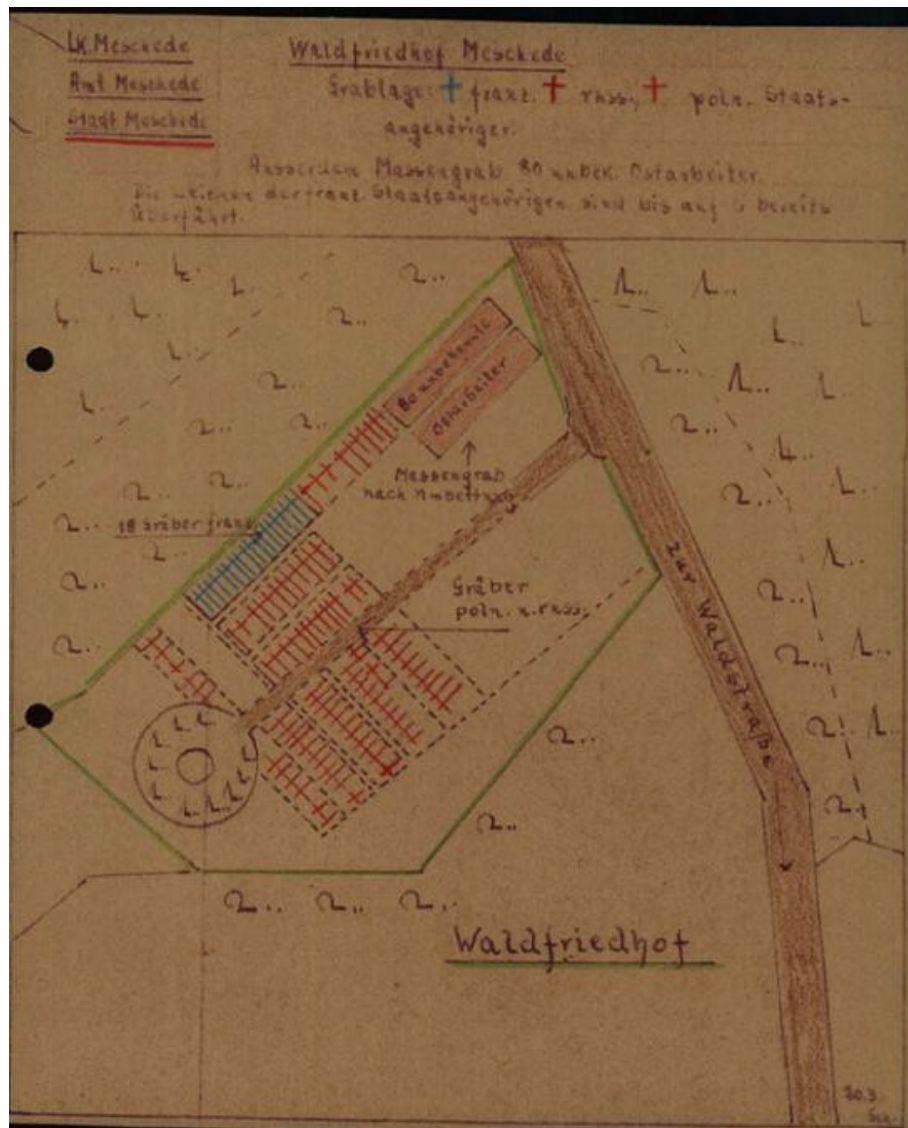 Lk. Meschede
Amt Meschede
Stadt Meschede
Waldfriedhof Meschede
Grablage: franz. russ., poln. Staats-
angehöriger.
Ausserdem Massengrab 80 unbek. Ostarbeiter.
Die der franz. Staatsangehörigen sind bis auf 6 bereits
überführt.
80 unbekannte
Ostarbeiter
Massengrab
nach Umbettung
18 Gräber franz.
Gräber
poln. u. russ.
zur Waldstraße
Waldfriedhof
20.3.